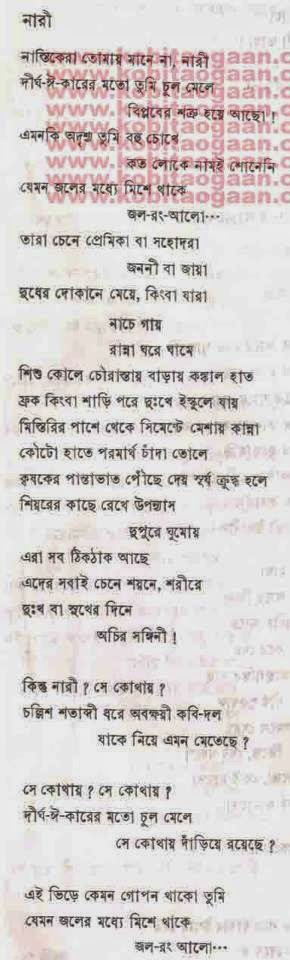 নারী
নাস্তিকেরা তোমায় মানে না, নারী
দীর্ঘ-ঈ-কারের মতো তুমি চুল মেলে
বিপ্লবের শত্রু হয়ে আছো !
এমনকি অদৃশ্য তুমি বহু চোখে
কত লোকে নামই শোনেনি
যেমন জলের মধ্যে মিশে থাকে
জল-রং-আলো···
তারা চেনে প্রেমিকা বা সহোদরা
জননী বা জায়া
দুধের দোকানে মেয়ে, কিংবা যারা
নাচে গায়
রান্না ঘরে ঘামে
শিশু কোলে চৌরাস্তায় বাড়ায় কঙ্কাল হাত
ফ্রক কিংবা শাড়ি পরে দুঃখে ইস্কুলে যায়
মিস্তিরির পাশে থেকে সিমেন্টে মেশায় কান্না
কৌটো হাতে পরমার্থ চাঁদা তোলে
কৃষকের পান্তাভাত পৌঁছে দেয় সূর্য ক্রুদ্ধ হলে
শিয়রের কাছে রেখে উপন্যাস
দুপুরে ঘুমোয়
এরা সব ঠিকঠাক আছে
এদের সবাই চেনে শয়নে, শরীরে
দুঃখ বা সুখের দিনে
অচির সঙ্গিনী !
কিন্তু নারী ? সে কোথায় ?
চল্লিশ শতাব্দী ধরে অবক্ষয়ী কবি-দল
যাকে নিয়ে এমন মেতেছে ?
সে কোথায় ? সে কোথায় ?
দীর্ঘ-ঈ-কারের মতো চুল মেলে
সে কোথায় দাঁড়িয়ে রয়েছে ?
এই ভিড়ে কেমন গোপন থাকো তুমি
যেমন জলের মধ্যে মিশে থাকে
জল-রং আলো···
www.kobitaogaan.c
www.kobitaogaan.c
www.kobitaogaan.c
www.kobitaogaan.c
www.kobitaogaan.c
www.kobitaogaan.c
www.kobitaogaan.c